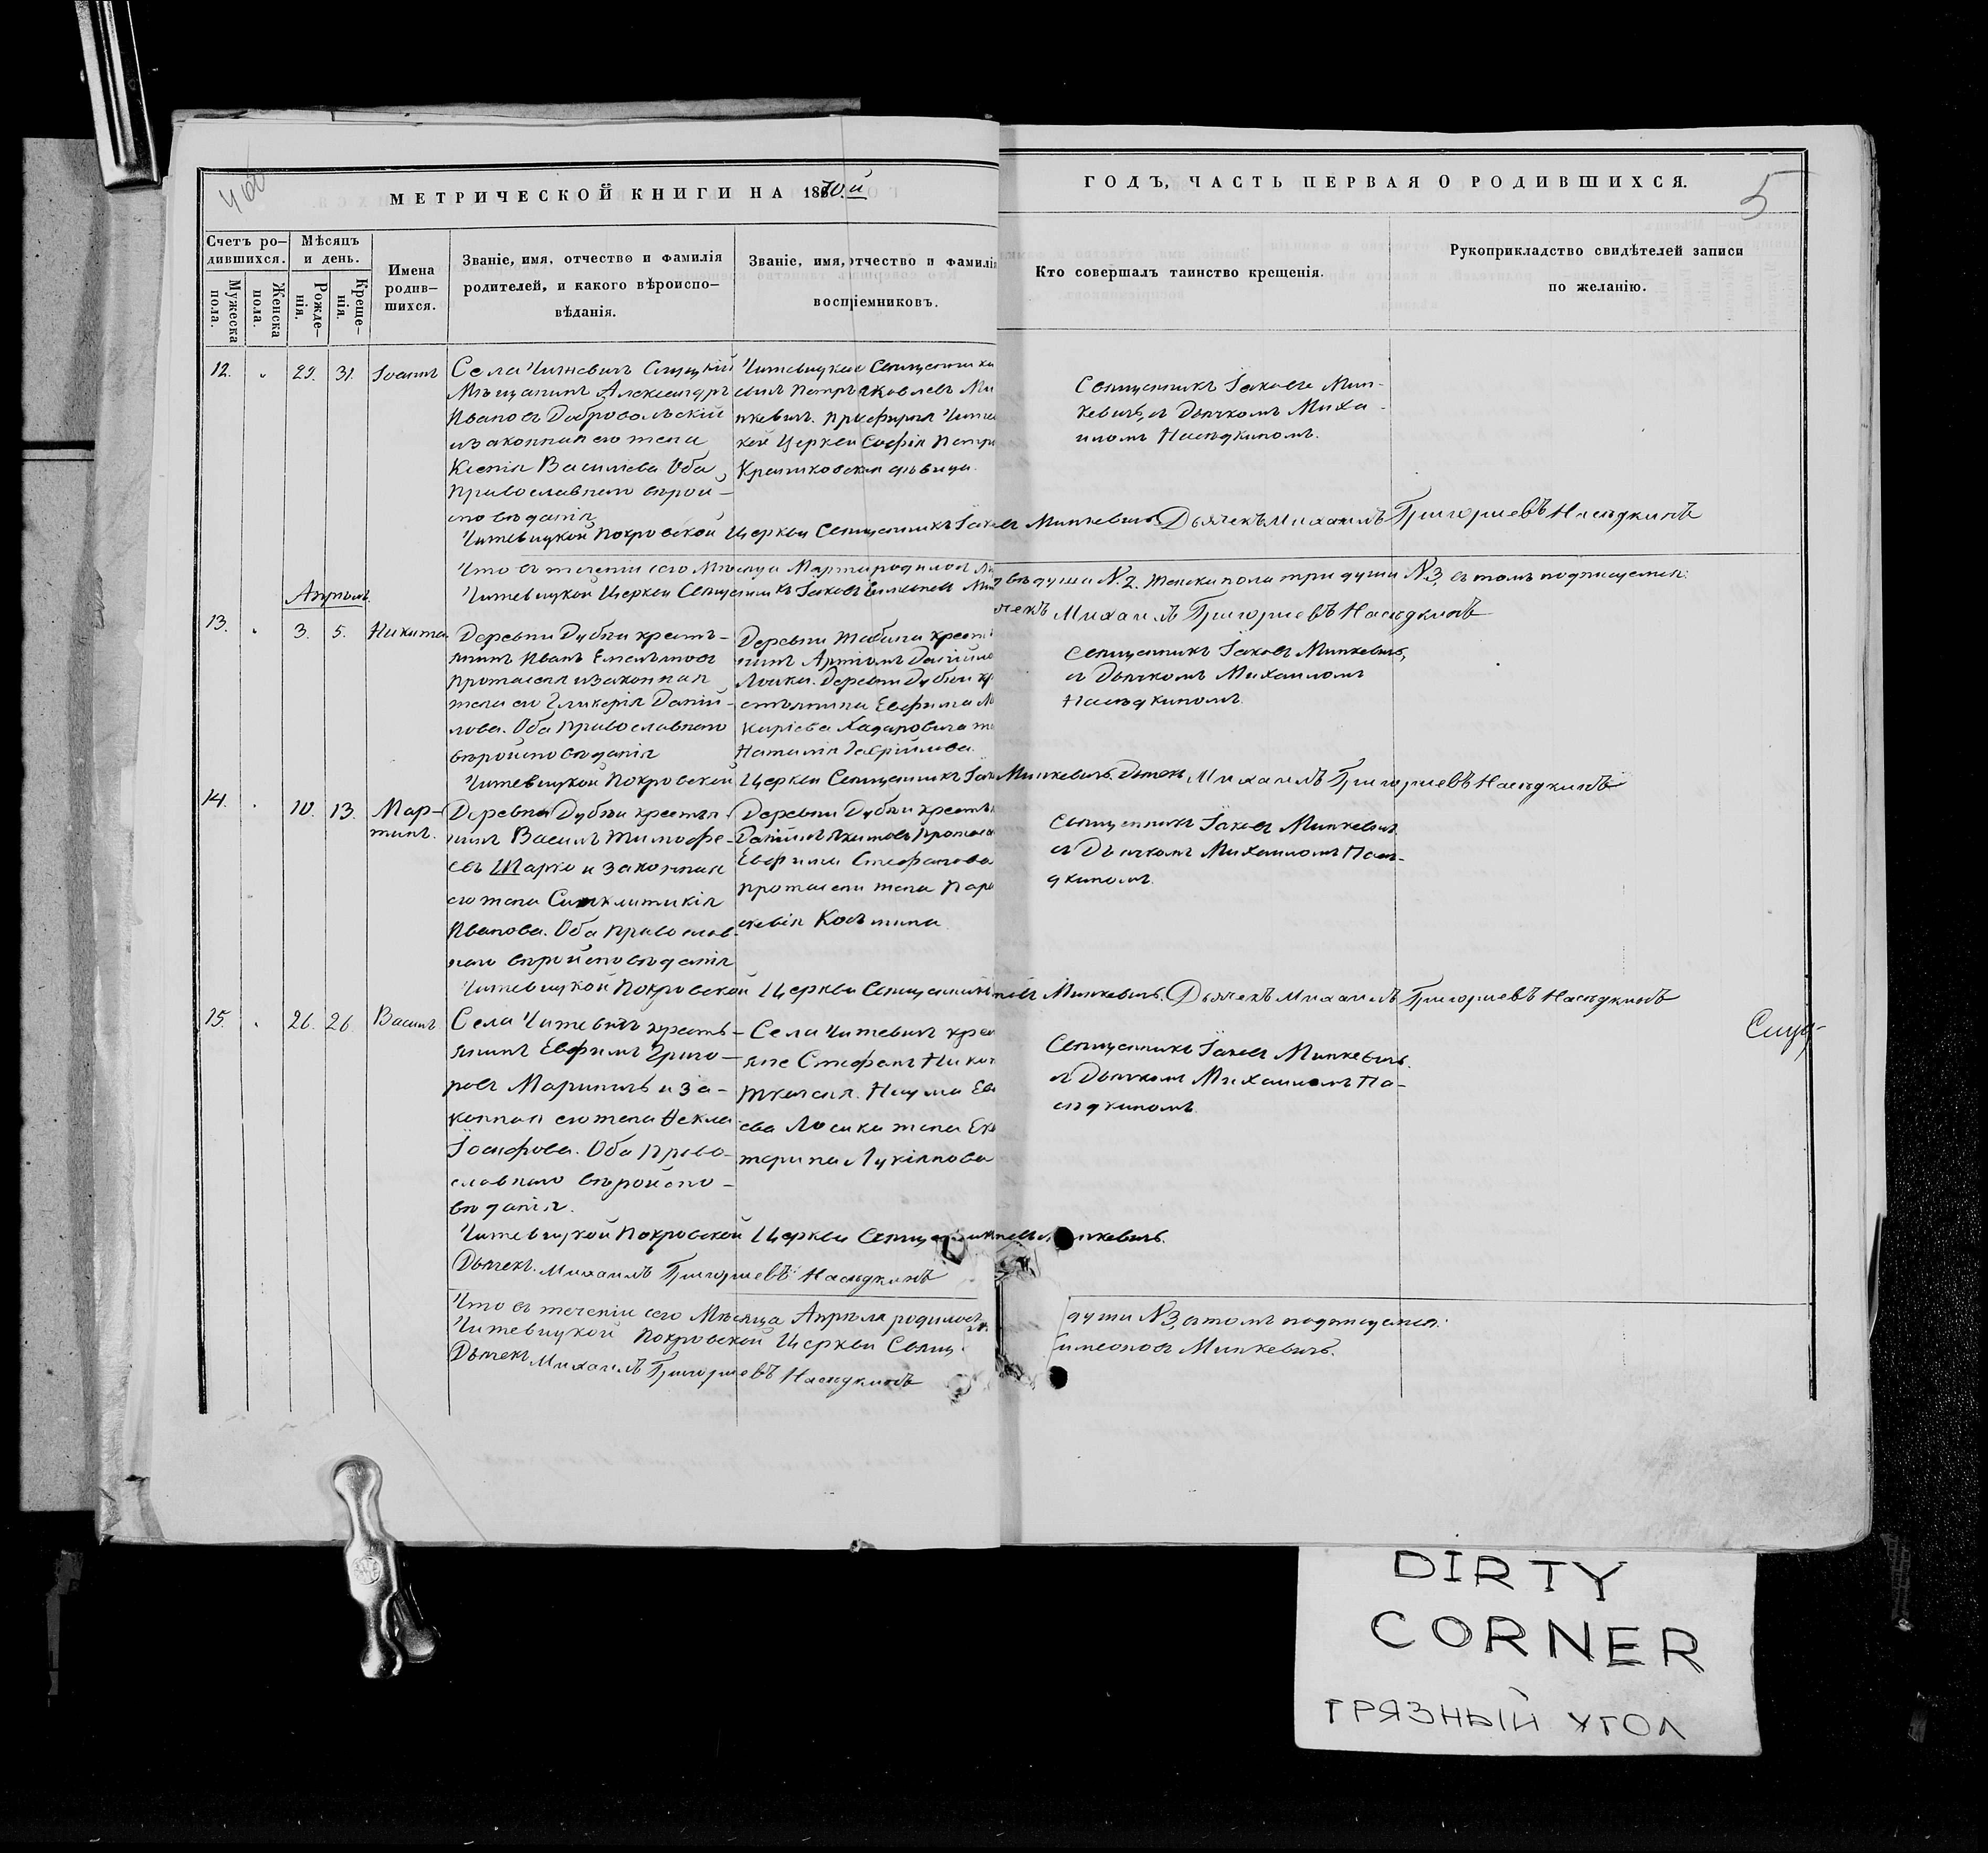 460
МЕТРИЧЕСКОЙ КНИГИ НА 1870й
ГОДЪ, ЧАСТЬ ПЕРВАЯ О РОДИВШИХСЯ.
5
Счетъ ро-
дившихся.
Мужеска
пола.
Женска
пола.
Мѣсяцъ
и день.
Рожде-
нія.
Креще-
нія.
Имена
родив-
шихся.
Званіе, имя, отчество и фамилія
родителей, и какого вѣроиспо-
вѣданія.
Званіе, имя, отчество и фамилія
воспріемниковъ.
Кто совершалъ таинство крещенія.
Рукоприкладство свидѣтелей записи
по желанію.
12. 29. 31. Іоаннъ
Села Читевичъ Слуцкій
Мѣщанинъ Александръ
Ивановъ Добровольскій
и законная его жена
Ксенія Василіева Оба
Православнаго вѣрои-
споведанія
Читевицкаго Священника
сынъ Петръ Яковлевъ Ми
нкевичъ. Просфирня Читев
кой Церкви Софія Петр
девица.
Священникъ Іаковъ Мин-
кевичъ, съ Дьячкомъ Миха-
иломъ Насѣдкиномъ.
Читевицкой Покровской Церкви Священникъ Іаковъ Минкевичъ. Дьячекъ Михаилъ Григориевъ Насѣдкинъ
Что въ теченіи сего Мѣсяца Марта родилось
двѣ души N. 2. Женска пола три души N 3, въ томъ подписуемся:
Читевицкой Церкви Священникъ Іаковъ Симеоновъ Мин
Михаилъ Григориевъ Насѣдкинъ
Апрѣль.
13. 3. 5. Никита
Деревни Дубеи кресть-
янинъ Иванъ Емельяновъ
Протасеня и законная
жена его Гликерія Даній-
лова. Оба Православнаго
вѣройсповѣданія
Деревни крест
нинъ Артіомъ Даніило
Деревни Дубеи кр
естьянина Евфима М
каріева Хадаровича ж
Наталія Гавріилова.
Священникъ Іаковъ Минкевичъ,
съ Дьячкомъ Михаиломъ
Насѣдкиномъ.
Читевицкой Покровской Церкви Священникъ Іак Минкевичъ. Дьячекъ, Михаилъ Григориевъ Насѣдкинъ
14. 10. 13. Мар-
тинъ.
Деревни Дубеи крестья-
нинъ Василъ Тимофе-
евъ Шарко и законная
его жена Синклитикія
Иванова. Оба Православ-
наго вѣройсповѣданія
Деревни Дубеи крестья
Даніилъ Протасе
Евфима Стефанова
Протасени жена Пара
скевія Косьмина
Священникъ Іаковъ Минкевичъ
съ Дьячкомъ Михаиломъ Насѣ-
дкиномъ.
Читевицкой Покровской Церкви Священникъ Минкевичъ. Дьячекъ Михаилъ Григориевъ Насѣдкинъ
15. 26. 26. Василъ
Села Читевичъ кресть-
янинъ Евфимъ Григо-
рьевъ и за-
конная его жена Фекла
Іосифова. Оба Право-
славнаго вѣройспо-
вѣданія.
Села Читевичъ крес
яне Стефанъ Ники
Наума Ев
ева Лосика жена Ека
терина Лукіянова
Священникъ Іаковъ Минкевичъ.
съ Дьячкомъ Михаиломъ На-
сѣдкиномъ.
Читевицкой Покровской Церкви Священникъ Минкевичъ.
Дьячекъ. Михаилъ Григориевъ Насѣдкинъ
Что въ теченіи сего Мѣсяца Апрѣля родилось
души N 3, въ томъ подписуемся:
Читевицкой Покровской Церкви Свящ
Симеоновъ Минкевичъ.
Дьячекъ Михаилъ Григориевъ Насѣдкинъ
DIRTY
CORNER
ГРЯЗНЫЙ УГОЛ